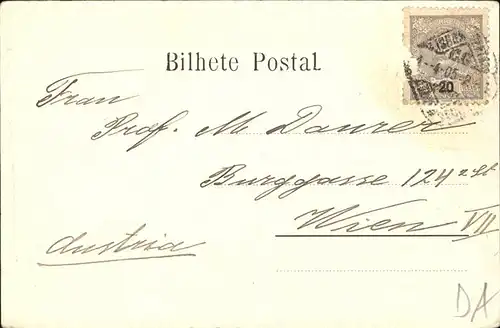 Bilhete Postal
Frau
Prof. M. Daurer
Burggasse 124 2 St
Wien VII
Austria
20
DA